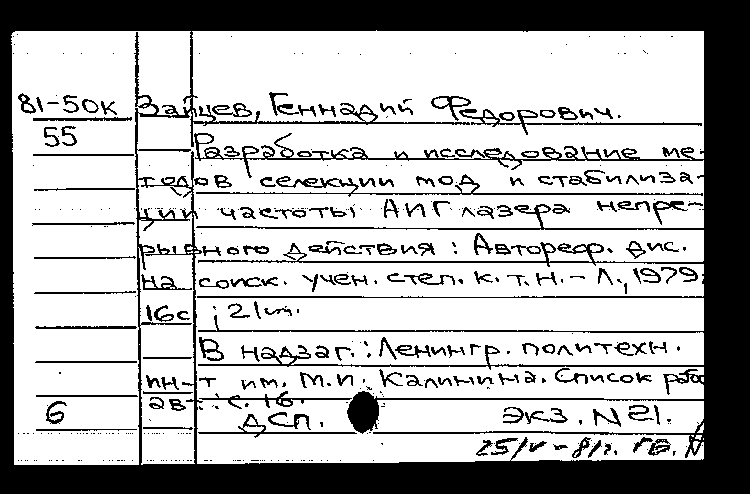 81-50к Зайцев, Геннадий Федорович.
55 Разработка и исследование ме-
тодов селекции мод и стабилиза-
ции частоты АИГ лазера непре-
рывного действия : Автореф. дис.
на соиск. учен. степ. к.т.н. - Л., 1979.
16с ; 21см.
В надзаг.: Ленингр. политехн.
ин-т им. М.И. Калинина. Список работ
авт.: с. 16.
6 ДСП. Экз. N 21.
25/V - 81г.